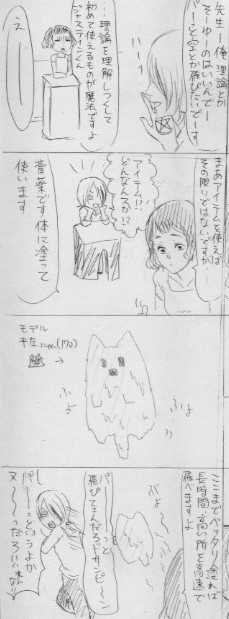 先生ー俺 理論とか
そーゆーのはいいんでー
パーッと空とか飛びたいでーす
…理論を理解しつくして
初めて使えるものが魔法ですよ
ジャスティンくん
え
まあアイテムを使えば
その限りではないですが…
アイテム!?
どんなんスか!?
膏薬です 体に塗って
使います
モデル
平左
(170)
→
ぷよ
ぷよ
ここまでベッタリ塗れば
長時間、高い所を高速で
飛べますよ
ぷよ
ぷよ
パーーっと
飛びてェんだろドサンピーン
パーーっというよか
ヌーーっだろいいまだ!!